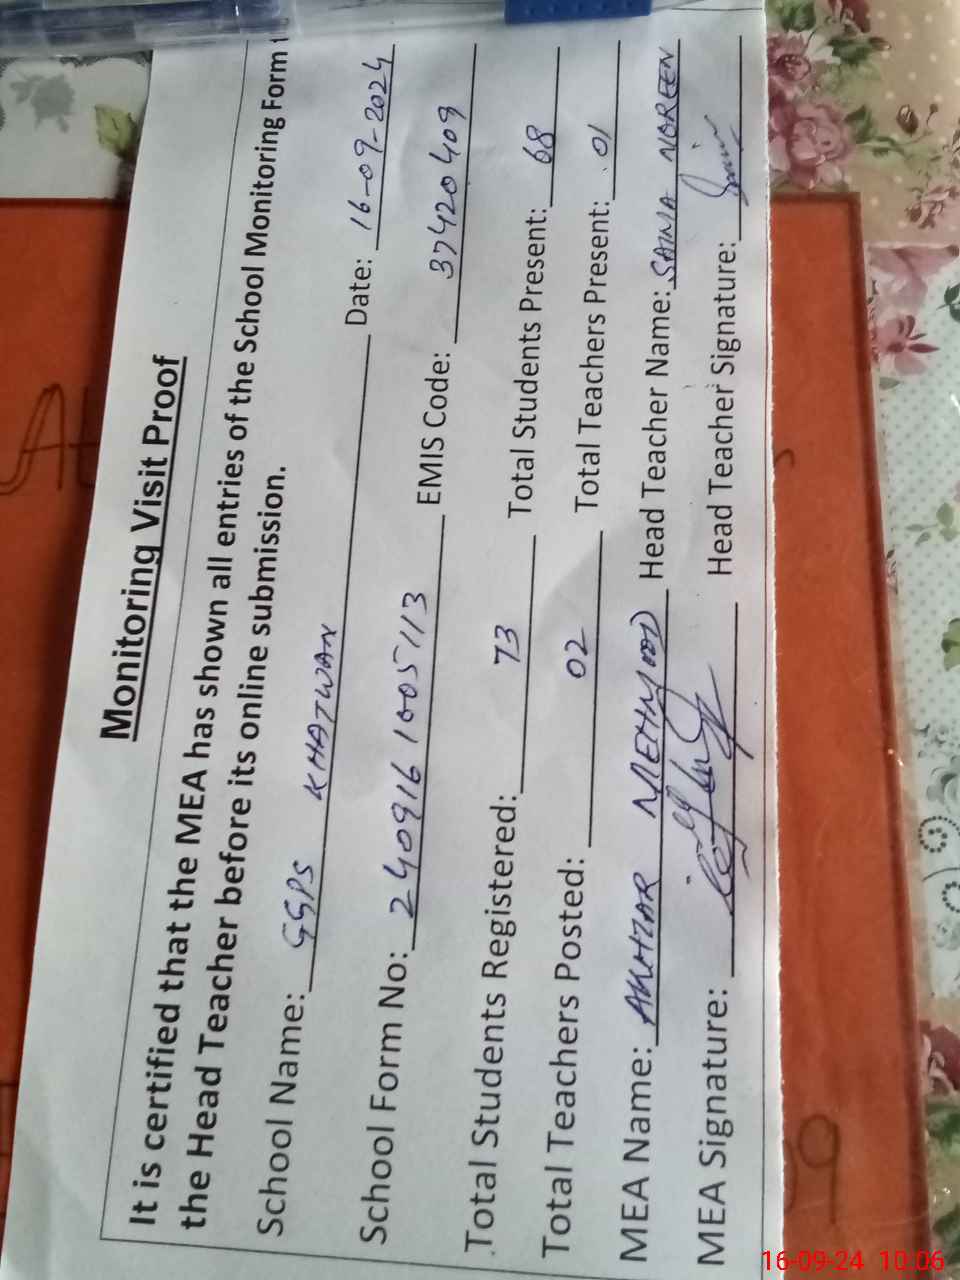 Monitoring Visit Proof
It is certified that the MEA has shown all entries of the School Monitoring Form
the Head Teacher before its online submission.
School Name: GGPS KHATWAN Date: 16-09-2024
School Form No: 2409161005113 EMIS Code: 37420409
Total Students Registered: 73 Total Students Present: 68
Total Teachers Posted: 02 Total Teachers Present: 01
MEA Name: MEHMOOD Head Teacher Name: SAIMA NOREEN
MEA Signature: Head Teacher Signature:
16-09-24 10:06